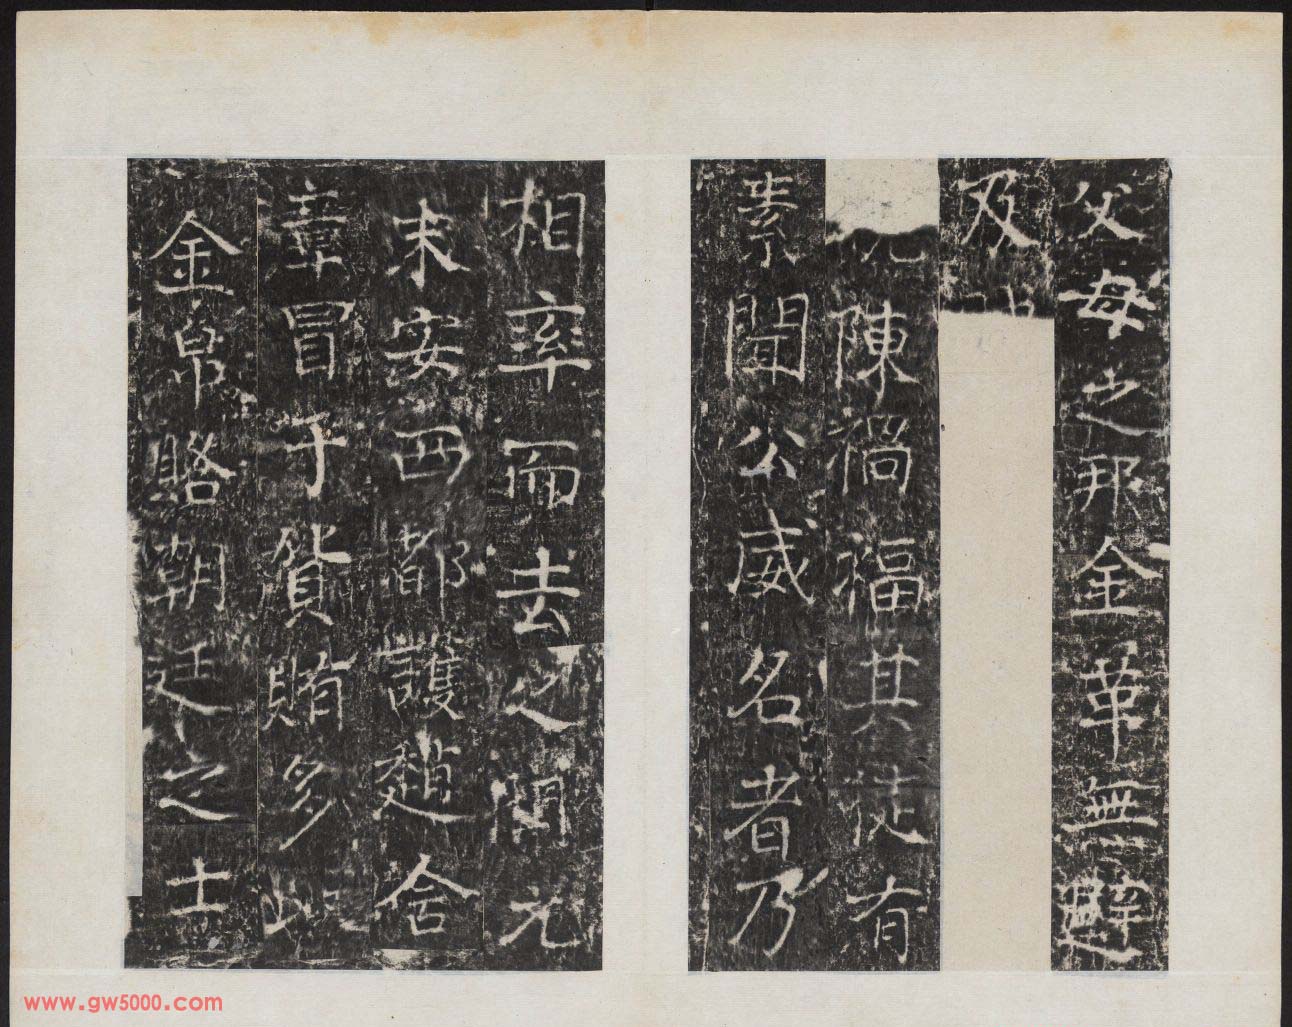 父母之邦金革無避
及
陳禍福其徒有
素聞公威名者乃
相率而去之開元
末安西都護趙含
章冒于貨賄多以
金帛賂朝廷之士
www.gw5000.com